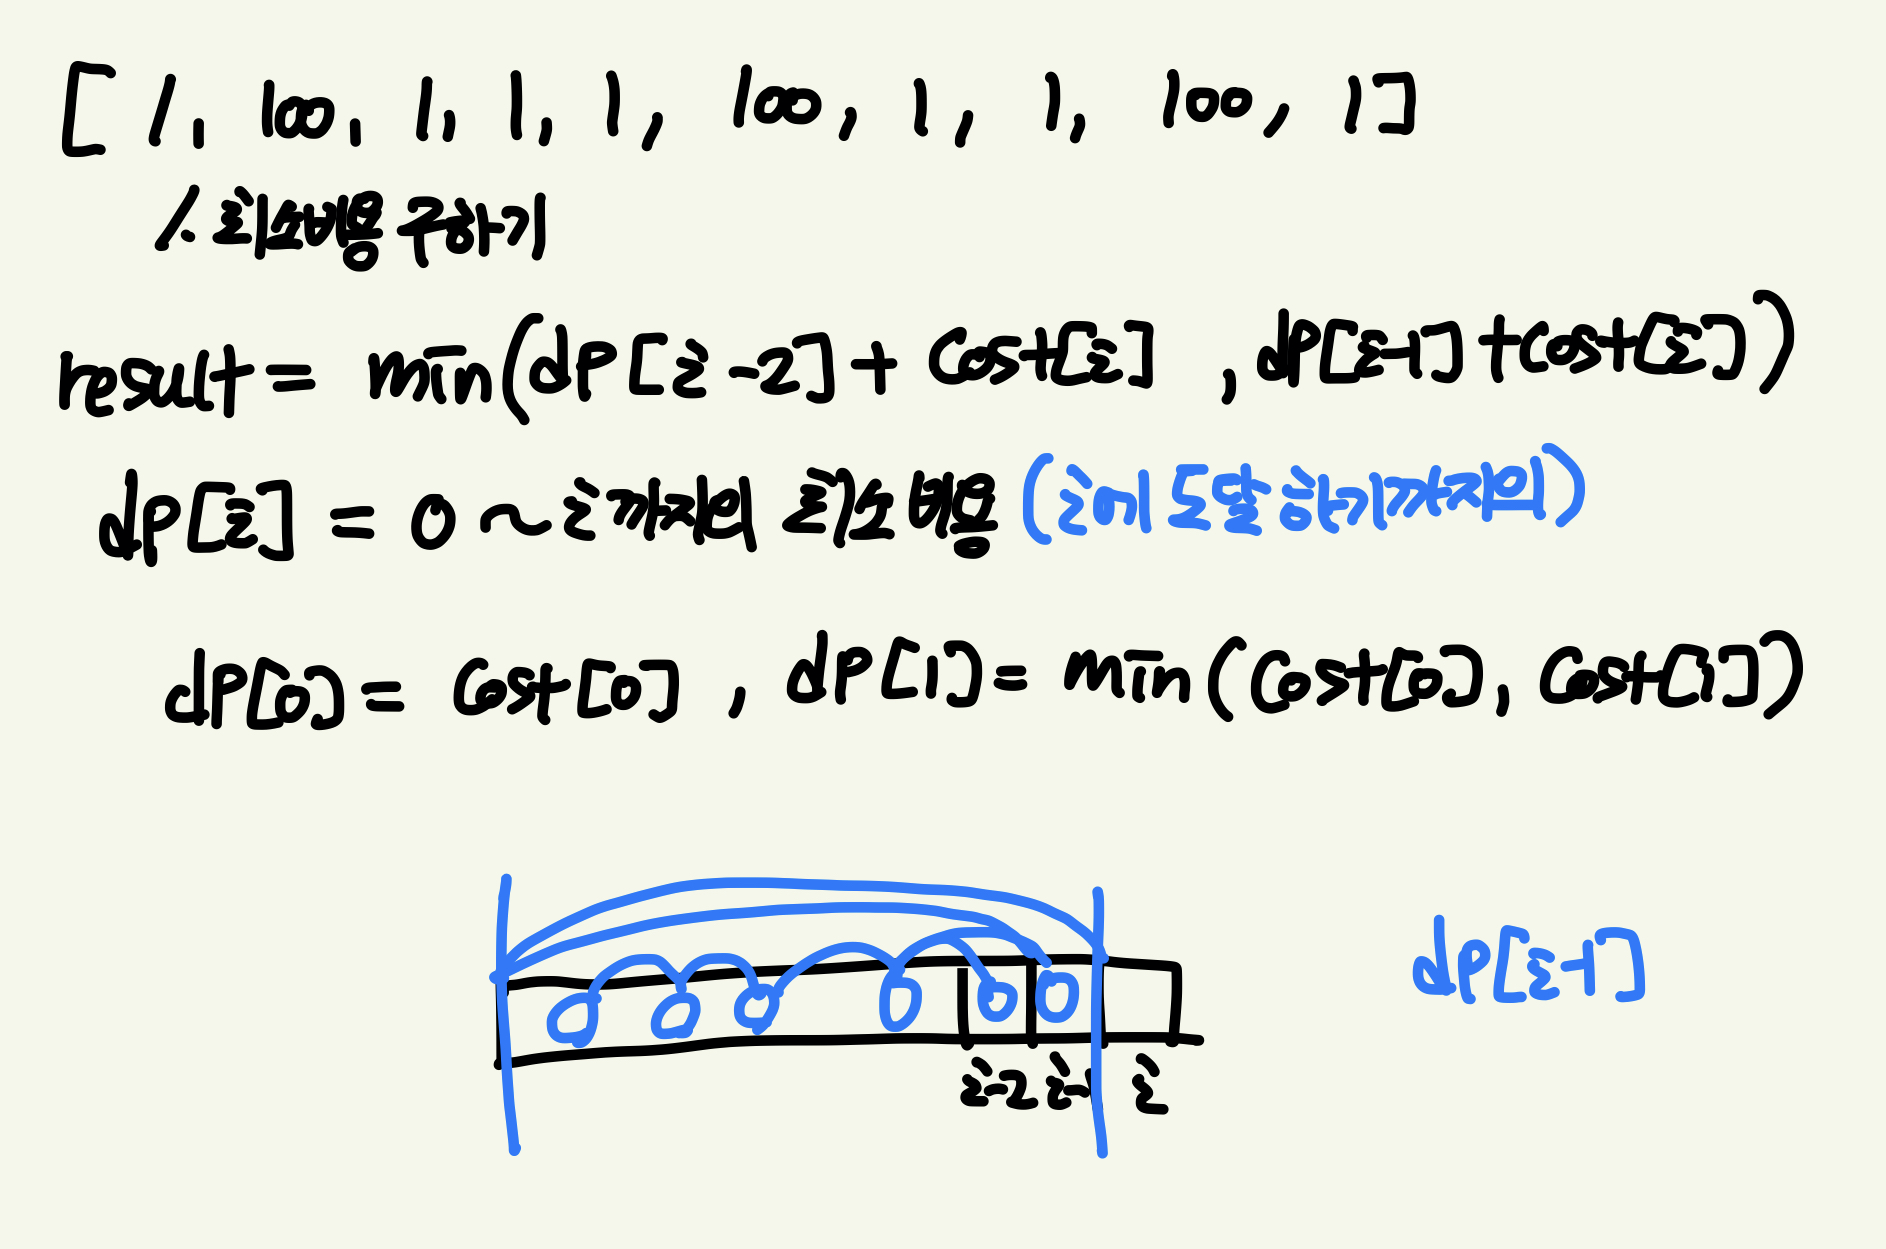 [ 1, 100, 1, 1, 1, 100, 1, 1, 100, 1]
/. 최소비용 구하기
result = min(dp[i-2] + cost[i], dp[i-1] + cost[i])
dp[i] = 0 ~ i까지의 최소비용 (i에 도달하기까지의)
dp[0] = cost[0], dp[1] = min(cost[0], cost[1])
dp[i-1]
i-2 i-1 i